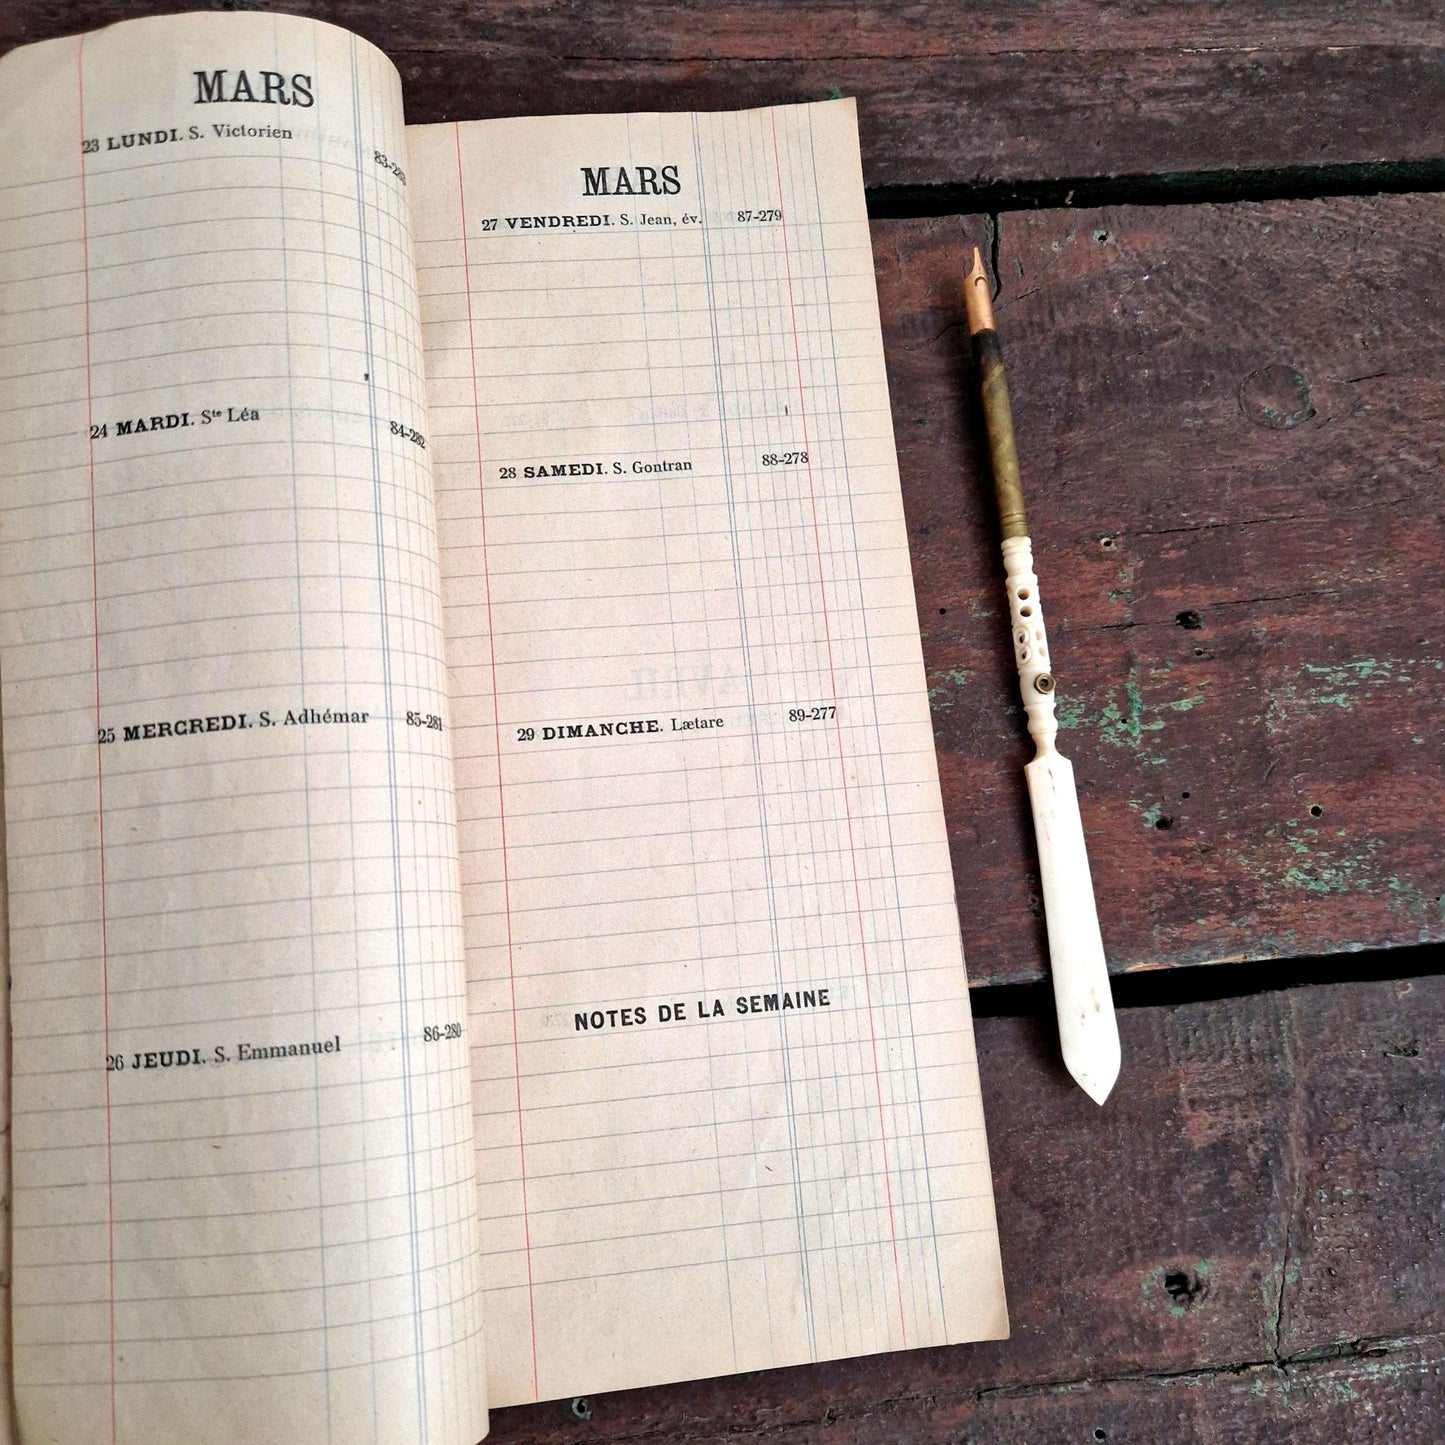 MARS
23 LUNDI. S. Victorien 83-283
24 MARDI. Sᵗᵉ Léa 84-282
25 MERCREDI. S. Adhémar 85-281
26 JEUDI. S. Emmanuel 86-280
MARS
27 VENDREDI. S. Jean, év. 87-279
28 SAMEDI. S. Gontran 88-278
29 DIMANCHE. Lætare 89-277
NOTES DE LA SEMAINE